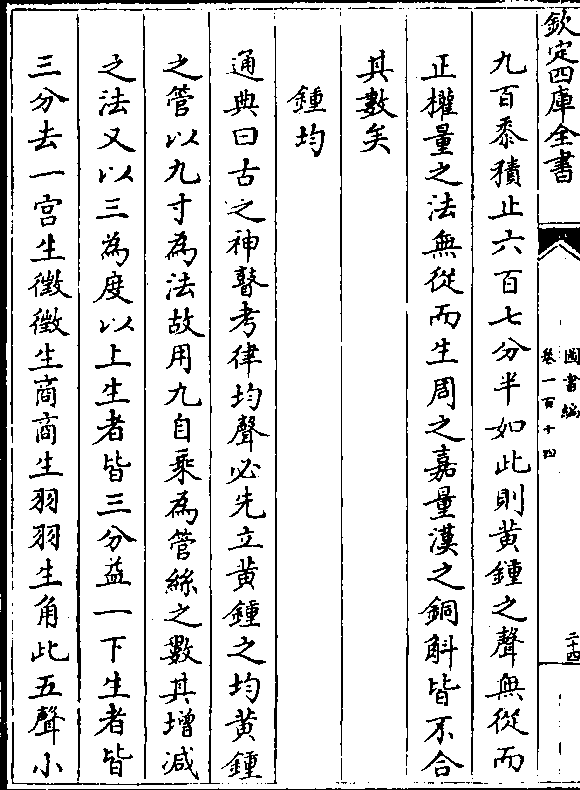 欽定四庫全書
圖書編
卷一百十四
二十四
九百黍積止六百七分半如此則黄鍾之聲無從而
正權量之法無從而生周之嘉量漢之銅斛皆不合
其數矣
鍾均
通典曰古之神瞽考律均聲必先立黄鍾之均黄鍾
之管以九寸為法故用九自乘為管絲之數其增減
之法又以三為度以上生者皆三分益一下生者皆
三分去一宫生徵徵生商商生羽羽生角此五聲小